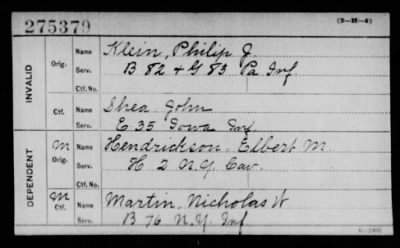 275379 (3-H-4)
INVALID Orig. Name Klein, Philip J.
Serv. B 82 & G 83 Pa Inf
Ctf. No.
Ctf. Name Shea John
Serv. E 35 Iowa Inf
DEPENDENT M Orig. Name Hendrickson, Elbert M.
Serv. H 2 N.Y. Cav.
Ctf. No.
M Ctf. Name Martin, Nicholas W
Serv. B 76 N.Y. Inf